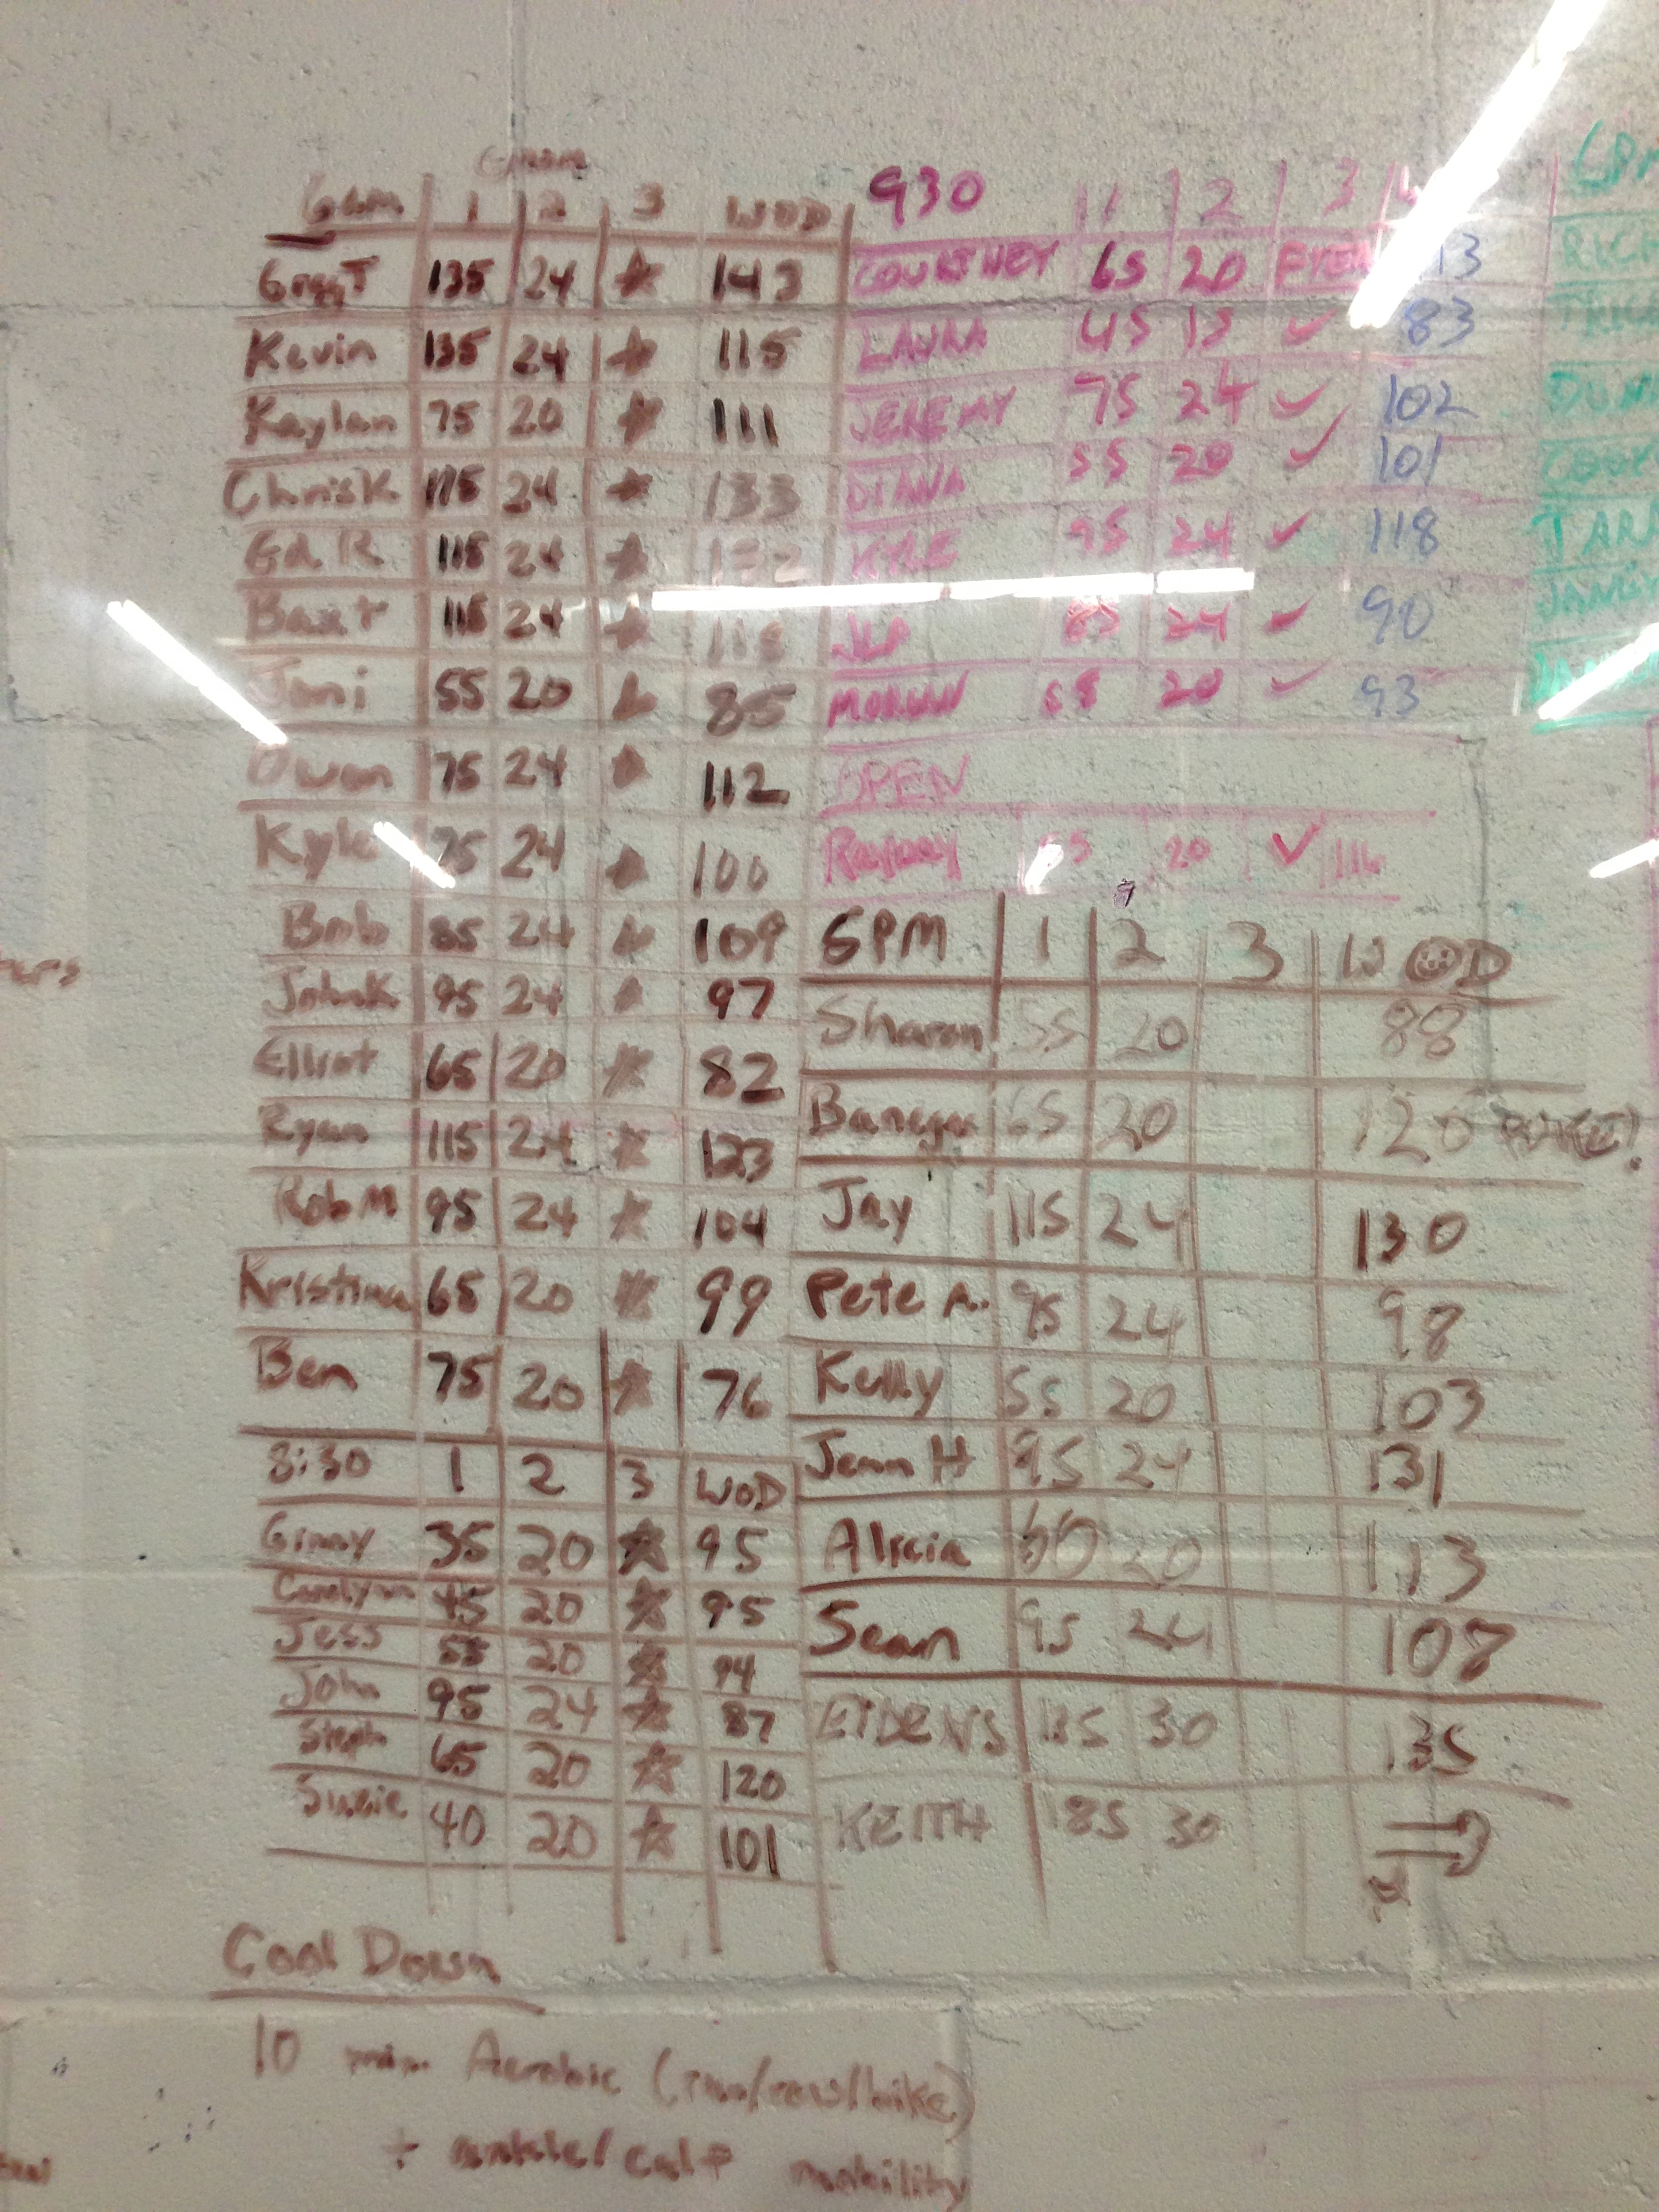 6am 1 2 3 WOD
GregT 135 24 ★ 143
Kevin 135 24 ★ 115
Kaylan 75 20 ★ 111
ChrisK 175 24 ★ 133
Ed R 115 24 ★ 132
Baxt 115 24 ★
Joni 55 20 ★ 85
Owen 75 24 ★ 112
Kyle 75 24 ★ 100
Bob 85 24 ★ 109
JohnK 95 24 ★ 97
Elliot 65 20 ★ 82
Ryan 115 24 ★ 123
Rob M 95 24 ★ 104
Kristina 65 20 ★ 99
Ben 75 20 ★ 76
8:30 1 2 3 WOD
Ginny 35 20 ★ 95
Carolynn 45 20 ★ 95
Jess 55 20 ★ 94
John 95 24 ★ 87
Steph 65 20 ★ 120
Susie 40 20 ★ 101
Cool Down
10 min Aerobic (run/row/bike)
+ ankle/calf mobility
930 1 2 3
COURTNEY 65 20
LAURA 45 15 ✓ 83
JEREMY 75 24 ✓ 102
DIANA 55 20 ✓ 101
KYLE 95 24 ✓ 118
JLP 85 24 ✓ 90
MORGAN 65 20 ✓ 93
OPEN
20 ✓ 116
5PM 1 2 3 WOD
Sharon 55 20 88
65 20 120
Jay 115 24 130
Pete A. 95 24 98
Kelly 55 20 103
Jenn H 95 24 131
Alicia 60 20 113
Sean 95 24 108
EIDENS 135 30 135
KEITH 185 30
RICH
COOK